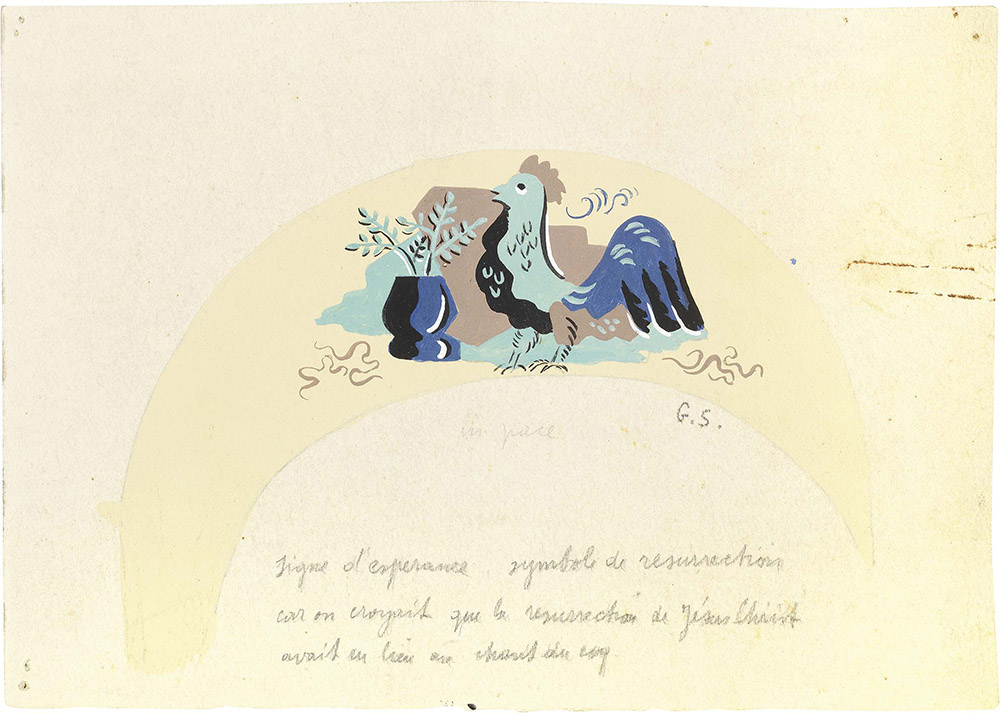 G.S.
in pace
signe d'esperance, symbole de resurrection
car on croyait que la resurrection de Jésus Christ
avait eu lieu au chant du coq